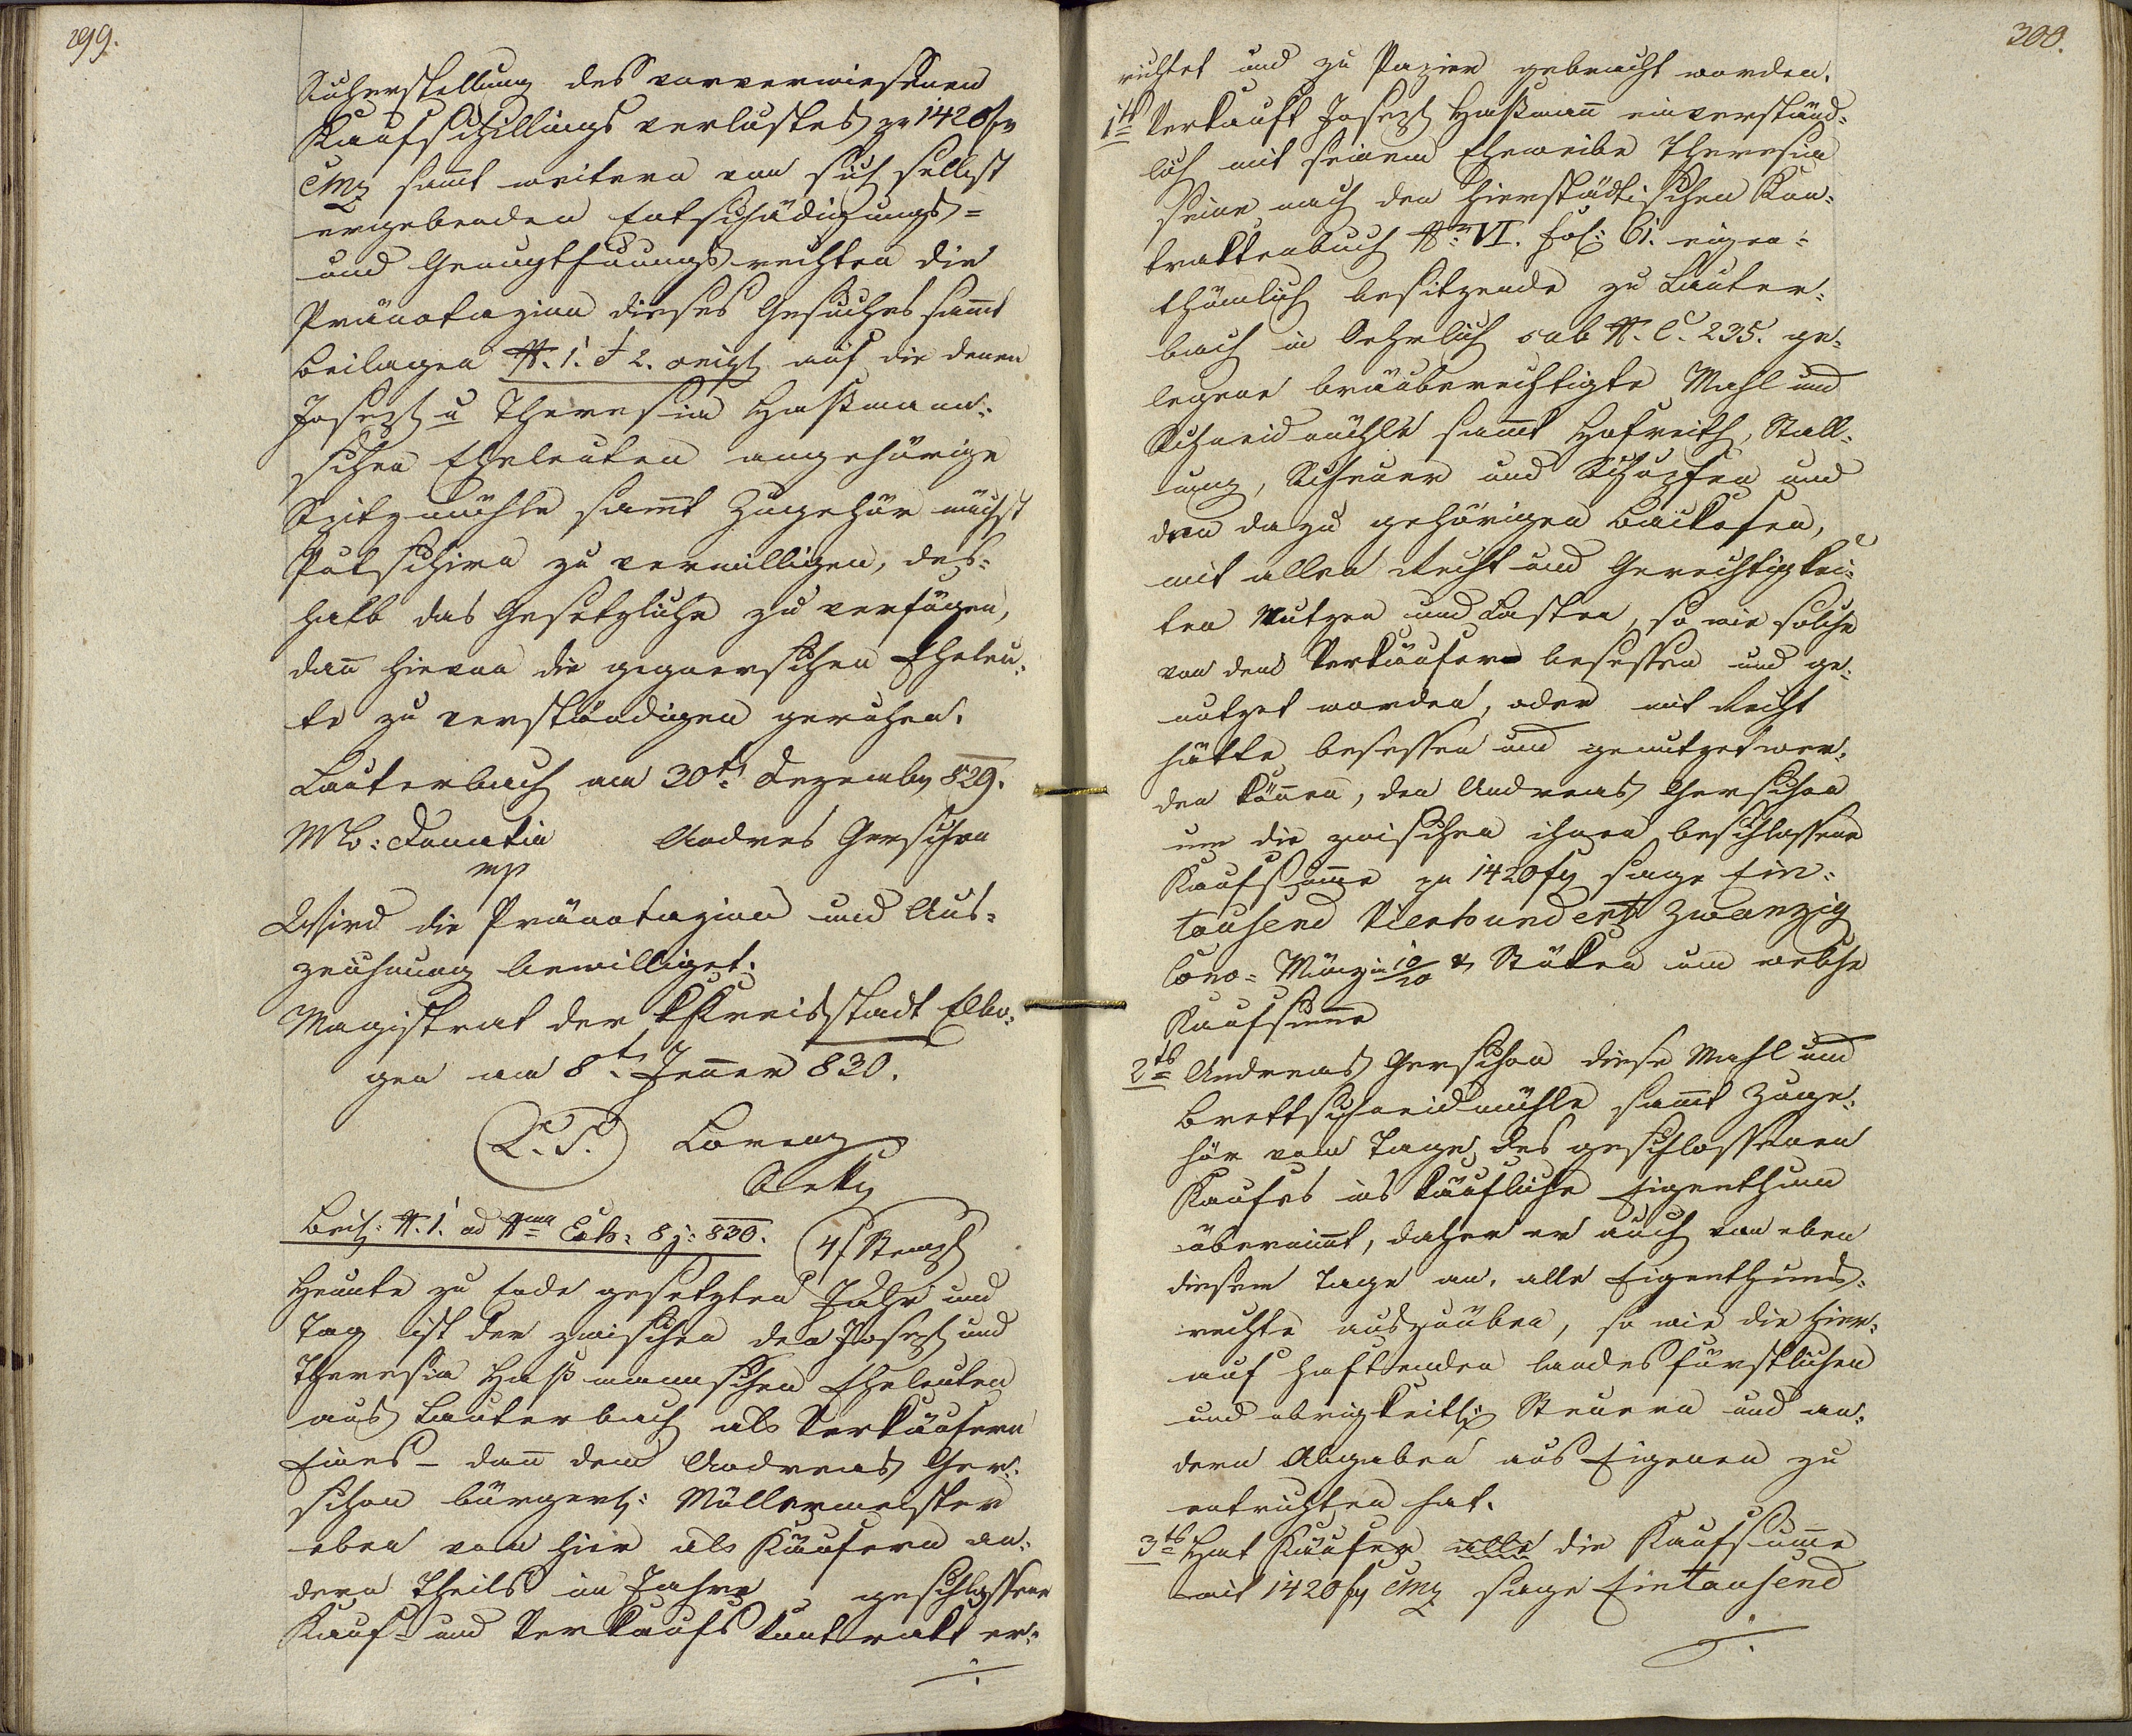 299.
Sicherstellung des vorverwiesenen
Kaufschillings verlustes pr 1420 fr
CMz samt weitern von sich selbst
ergebenden Entschädigungs=
und Genugthuungs rechten die
Pränotazion dieses Gesuches samt
Beilagen N. 1. & 2. auf die denen
Joseph u Theresia Haßmann=
schen Eheleuten angehörige
Spitzmühle samt Zugehör nächst
Putschirn zu verwilligen, des=
halb das Gesetzliche zu verfügen,
dan hievon die gegnerschen Eheleu=
te zu verständigen geruhen.
Lauterbach am 30t. Dezember 829.
Donatin Andres Gerschon
mp
Wird die Pränotazion und Aus=
zeichnung bewilliget.
Magistrat der k Kreisstadt Elbo=
gen am 8t. Jenner 830.
L. S. Lorenz
Beil: N. 1. ad Num Exh: 8 j: 830. 4 f Stempl
Heunte zu Ende gesetzten Jahr und
Tag ist der zwischen den Joseph und
Theresia Haßmannschen Eheleuten
aus Lauterbach als Verkäufern
Eines – dan dem Andreas Ger=
schon bürgerl: Müllermeister
eben von hier als Käufern an=
dern Theils im Jahre geschlossene
Kauf- und Verkaufs Kontrakt er=
./.
300.
richtet und zu Papier gebracht worden.
1tes Verkauft Joseph Haßmann einverständ=
lich mit seinem Eheweibe Theresia
seine nach den hierstädtischen Kon=
traktenbuch Nr. VI. Fol: 61. eigen=
thümlich besitzende zu Lauter=
bach in sub N. C. 235. ge=
legene bräuberechtigte Mahl und
Schneidmühle samt Hofreith, Stall=
ung, Scheuer und Schupfen und
den dazu gehörigen Backofen,
mit allen Recht und Gerechtigkei=
ten Nutzen und Lasten, so wie solche
von dem Verkäufern besessen und ge=
nutzet worden, oder mit Recht
hätte besessen und genutzet wer=
den können, den Andreas Gerschon
um die zwischen ihnen beschlossene
Kaufsumme pr 1420 fr sage Ein=
tausend Vierhundert Zwanzig
Conv= Münz in 10/20 x Stüken um welche
Kaufsumme
2tes Andreas Gerschon diese Mahl und
Brettschneidmühle samt Zuge=
hör vom Tage des geschlossenen
Kaufes ins käufliche Eigenthum
übernimt, daher er auch von eben
diesem Tage an, alle Eigenthums=
rechte auszuüben, so wie die hier=
auf haftenden landesfürstlichen
und obrigkeitl: Steuern und an=
dern Abgaben aus Eigenen zu
entrichten hat.
3tes Hat Käufer alle die Kaufsumme
mit 1420 fr CMz sage Eintausend
./.